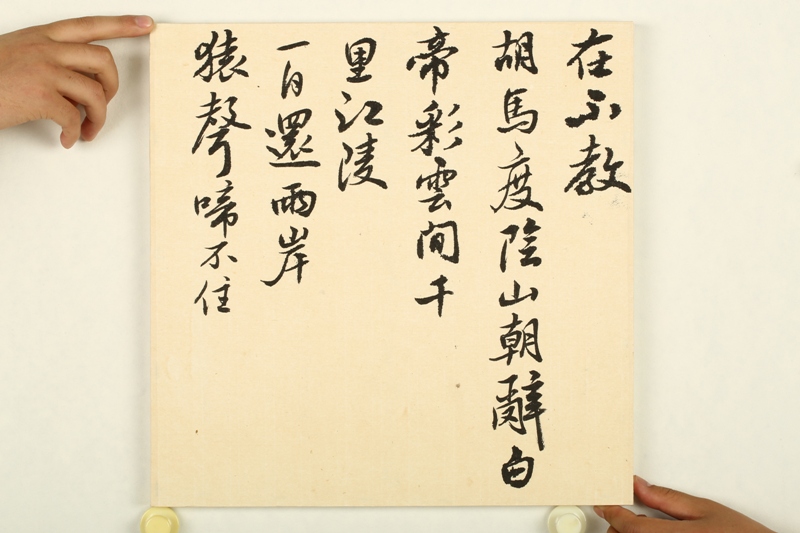 在不教
胡馬度陰山朝辭白
帝彩雲間千
里江陵
一日還兩岸
猿聲啼不住